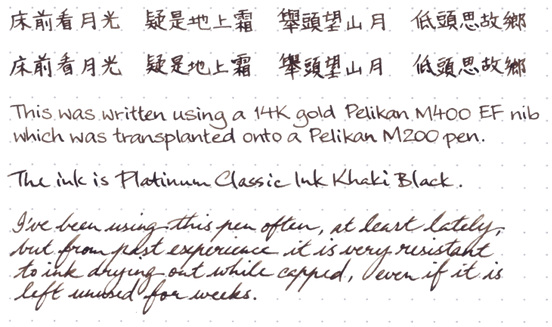 床前看月光 疑是地上霜 舉頭望山月 低頭思故鄉
床前看月光 疑是地上霜 舉頭望山月 低頭思故鄉
This was written using a 14K gold Pelikan M400 EF nib
which was transplanted onto a Pelikan M200 pen.
The ink is Platinum Classic Ink Khaki Black.
I've been using this pen often, at least lately,
but from past experience it is very resistant
to ink drying out while capped, even if it is
left unused for weeks.